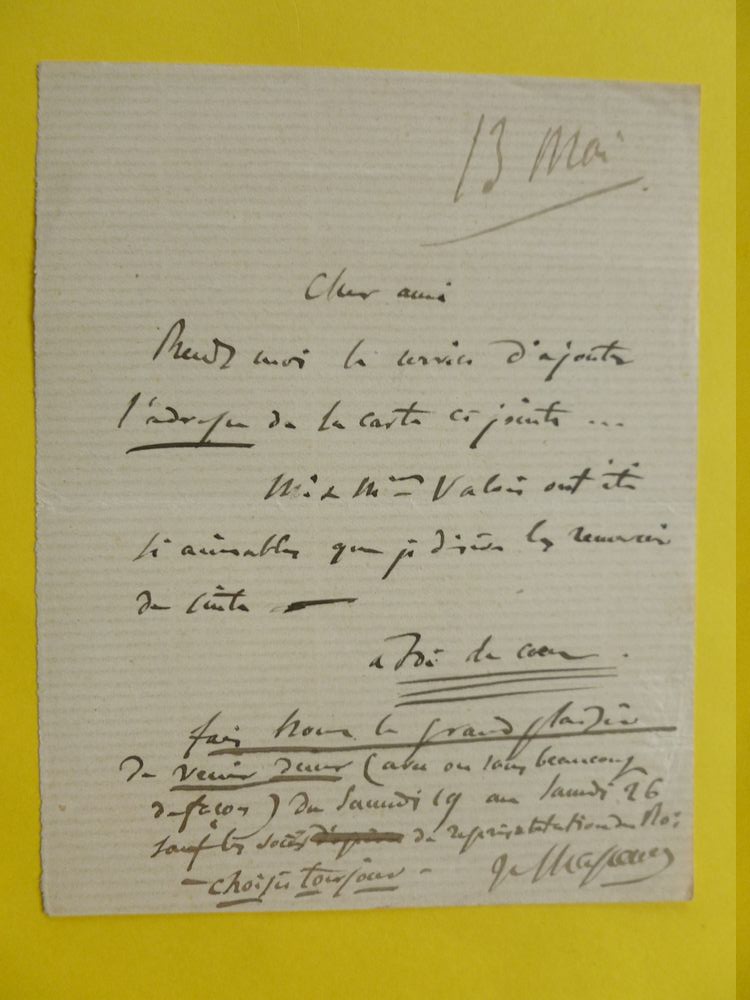 13 Mai
Cher ami
Rends moi le service d'ajouter
l'adresse de la carte ci jointe ...
Mr & Mme Valois ont été
si aimables que je désire les remercier
de suite —
à toi de coeur.
fais nous le grand plaisir
de venir diner (avec ou sans beaucoup
de façons) du Samedi 19 au Samedi 26
sauf les soirs de représentation du Roi
- choisis ton jour -
J. Massenet